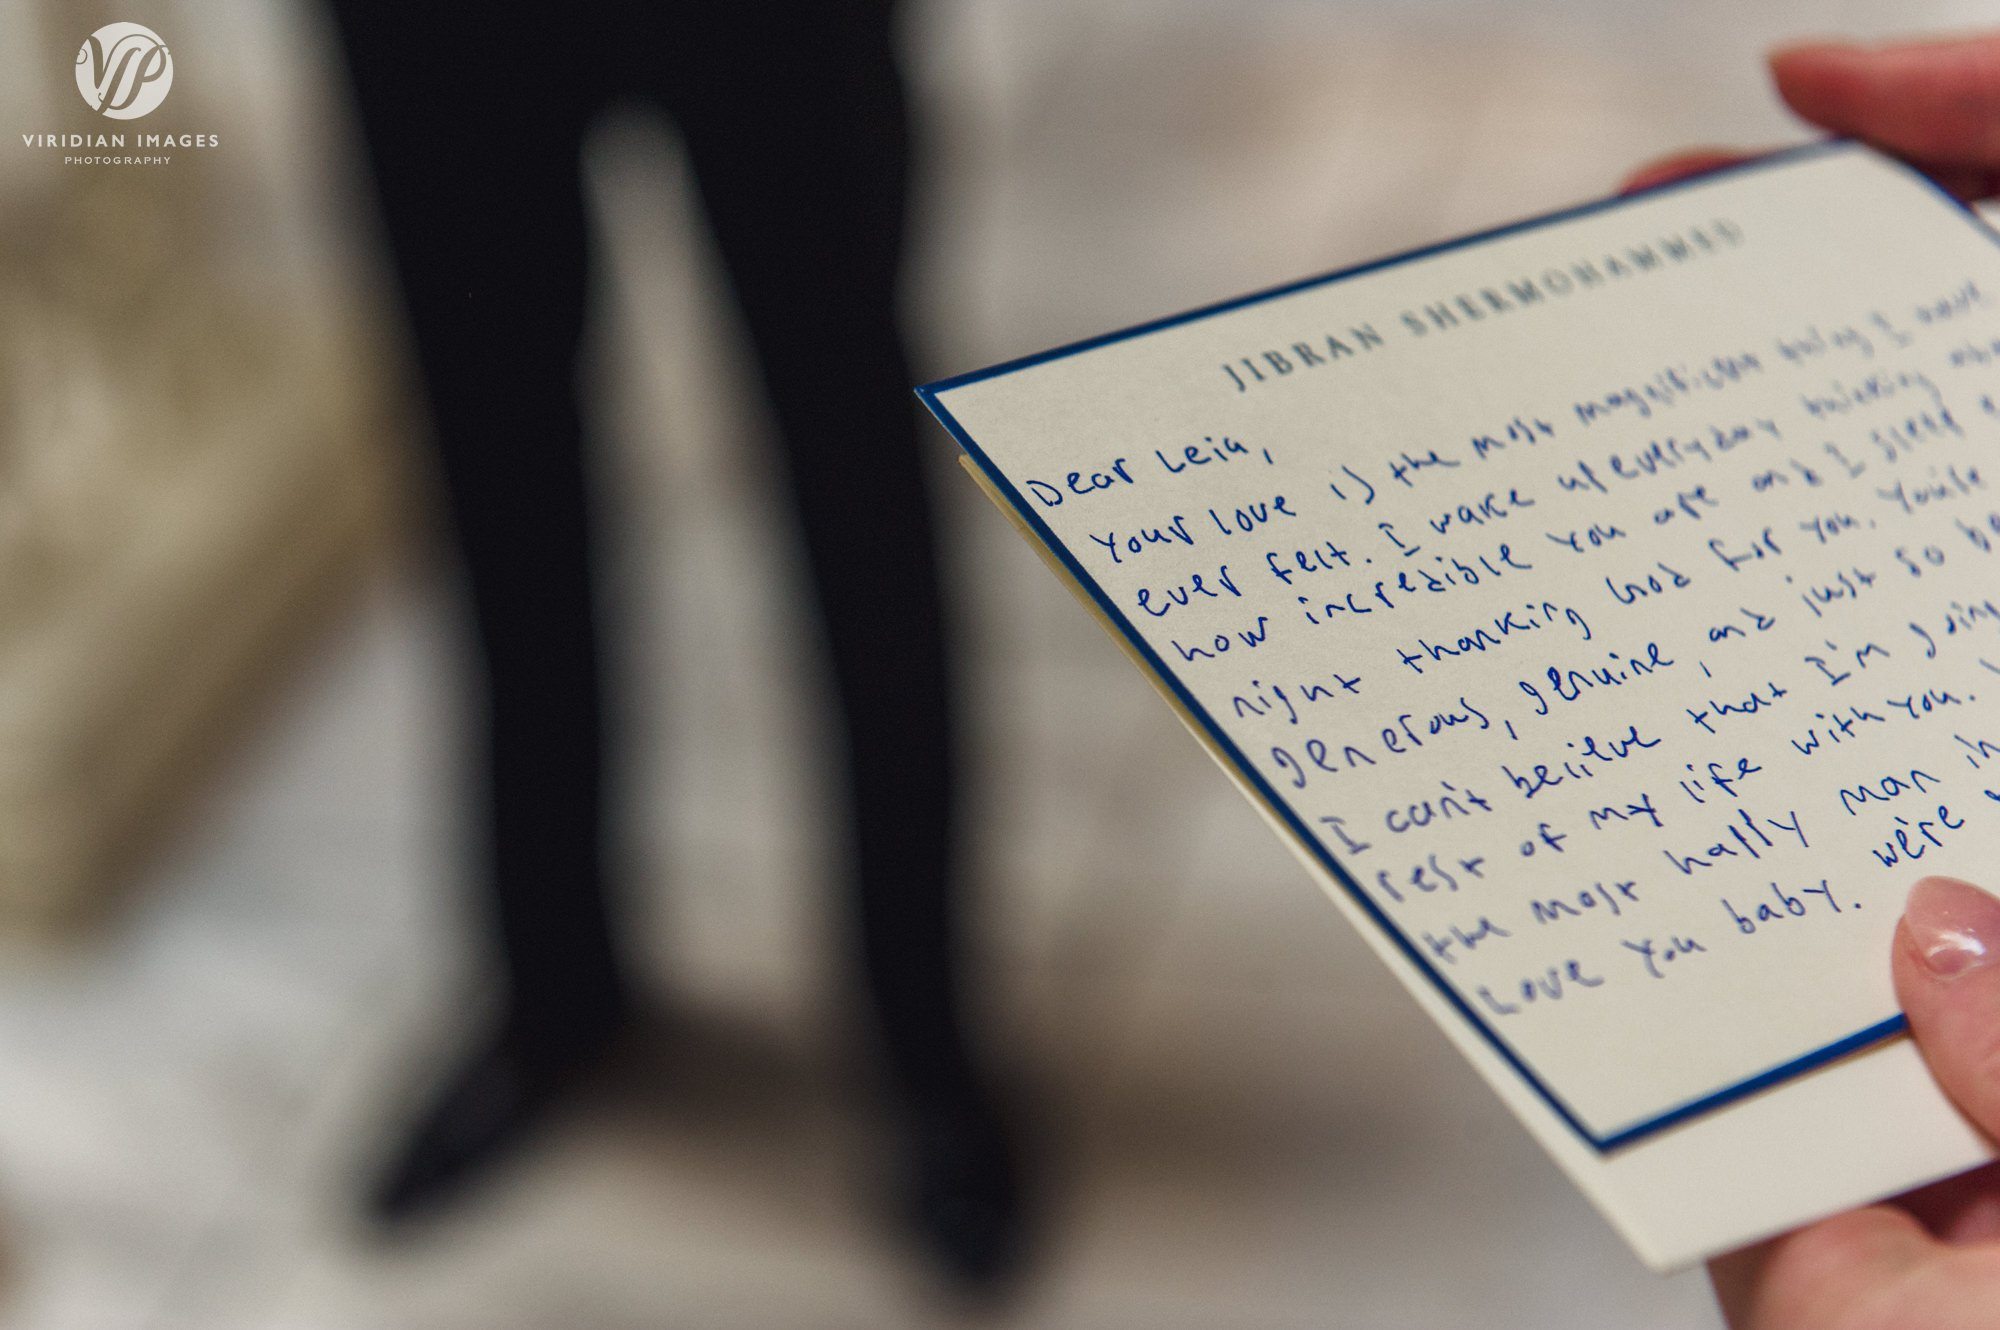 VP
VIRIDIAN IMAGES
PHOTOGRAPHY
JIBRAN SHERMOHAMMED
Dear Leia,
Your love is the most magnificent thing I have
ever felt. I wake up everyday thinking
how incredible you are and I sleep
night thanking God for you. You're
generous, genuine, and just so
I can't believe that I'm going
rest of my life with you.
the most happy man in
Love you baby. we're